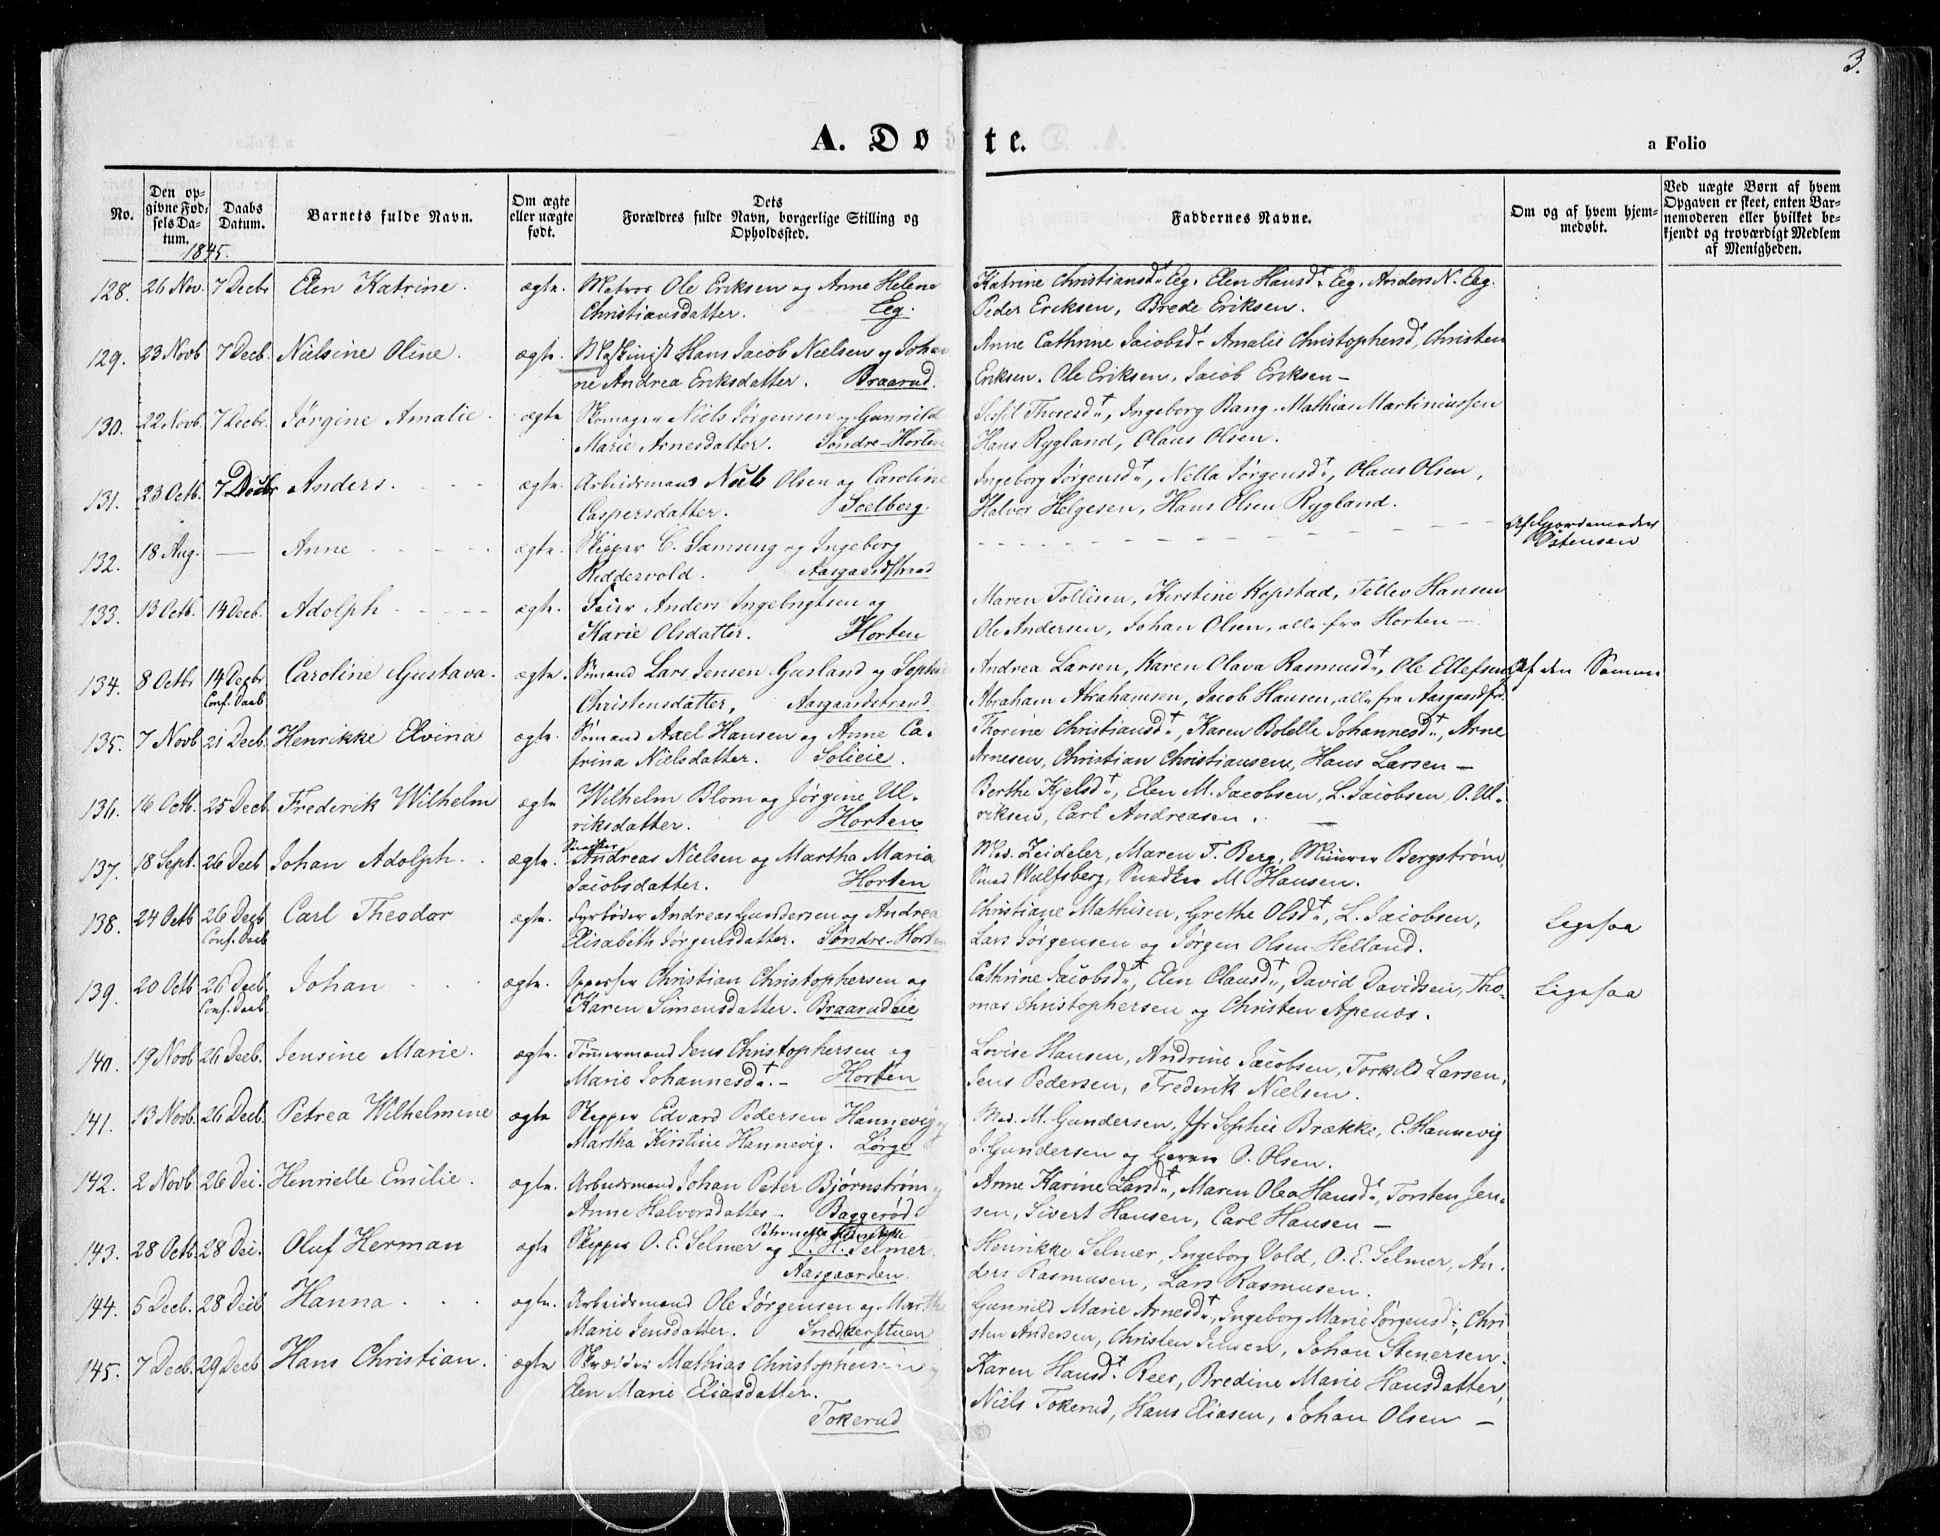 3.
A. Døbte.
a Folio
No.
Den opgivne Fødsels Datum.
Daabs Datum.
Barnets fulde Navn.
Om ægte eller uægte født.
Dets Forældres fulde Navn, borgerlige Stilling og Opholdssted.
Faddernes Navne.
Om og af hvem hjemmedøbt.
Ved uægte Børn af hvem Opgaven er skeet, enten Barnemoderen eller hvilket bekjendt og troværdigt Medlem af Menigheden.
1845.
128. 26 Nov. 7 Decbr Elen Katrine. ægte. Matros Ole Eriksen og Anne Helene Katrine Christiansdtr Eeg. Elen Hansdtr Eeg. Anders N. Eeg.
Christiansdatter. Eeg. Peder Eriksen, Brede Eriksen.
129. 23 Novb 7 Decb. Nielsine Oline. ægte. Maskinist Hans Jacob Nielsen og Johan Anne Cathrine Jacobsd. Amalie Christophersd, Christen
ne Andrea Eriksdatter. Braarud. Eriksen. Ole Eriksen, Jacob Eriksen —
130. 22 Novb. 7 Decbr. Jørgine Amalie. ægte Skomager Niels Jørgensen og Gunnild Thoresdtr, Ingeborg Bang. Mathias Martiniussen
Marie Arnesdatter. Søndre-Horten Hans Rygland, Olaus Olsen.
131. 23 Octb. 7 Decbr Anders. ægte. Arbeidsmand Niels Olsen og Caroline Ingeborg Jørgensdtr, Nella Jørgensdtr, Olaus Olsen,
Caspersdatter. Soelberg. Halvor Helgesen, Hans Olsen Rygland.
132. 18 Aug. — Anne ægte. Skipper C. Samsing og Ingeborg Af Gjordemoder
Riddervold. Aasgaardstrand Østensen
133. 13 Octb. 14 Decb. Adolph ægte. Anders Ingebrigtsen og Maren Tollisen, Kirstine Kopstad, Tellev Hansen
Karie Olsdatter. Horten Ole Andersen, Johan Olsen, alle fra Horten —
134. 8 Octbr 14 Decbr. Caroline Gustava. ægte. Sømand Lars Jensen Gusland og Sophie Andrea Larsen, Karen Olava Rasmusdtr, Ole Ellefsen, Af den Samme
Conf. Daab Christensdatter, Aasgaardstrand Abraham Abrahamsen, Jacob Hansen, alle fra Aasgaardstrd.
135. 7 Novb 21 Decb. Henrikke Elvina ægte. Sømand Axel Hansen og Anne Ca- Thorine Christiansdtr, Karen Bolette Johannesdtr, Arne
trina Nielsdatter. Solieie. Arnesen, Christian Christiansen, Hans Larsen —
136. 16 Octb. 25 Decb Frederik Wilhelm ægte Wilhelm Blom og Jørgine Ul- Berthe Kjelsdtr, Elen M. Jacobsen, L. Jacobsen, O. Ul-
riksdatter. Horten riksen, Carl Andreasen.
137. 18 Sept. 26 Decb Johan Adolph. ægte. Andreas Nielsen og Martha Maria Mad. Zeideler, Maren T. Berg, Bergstrøm,
Jacobsdatter. Horten Smed Wulfsberg, Snedker M. Hansen.
138. 24 Octb 26 Decb Carl Theodor ægte. Fyrbøder Andreas Gundersen og Andrea Christiane Mathisen, Grethe Olsdtr, L. Jacobsen, Ligesaa
Conf. Daab Elisabeth Jørgensdatter. Søndre-Horten Lars Jørgensen og Jørgen Olsen Helland.
139. 20 Octb 26 Decb. Johan ægte. Opperser Christian Christophersen og Cathrine Jacobsdtr, Elen Olausdtr, David Davidsen, Tho- Ligesaa
Conf. Daab Karen Simensdatter. Braarudeie mas Christophersen og Christen Apenæs.
140. 19 Novb 26 Decb. Jensine Marie. ægte. Tømmermand Jens Christophersen og Lovise Hansen, Andrine Jacobsen, Torkild Larsen,
Marie Johannesdtr. — Horten Jens Pedersen, Frederik Nielsen.
141. 13 Novb. 26 Decb. Petrea Wilhelmine ægte Skipper Edvard Pedersen Hannevig Mad. M. Gundersen, Jfr Sophie Brække, E. Hannevig
Martha Kirstine Hannevig. Lørge J. Gundersen og O. Olsen.
142. 2 Novb 26 Dei. Henrielle Emilie. ægte. Arbeidsmand Johan Peter Bjørnstrøm Anne Karine Larsdtr, Maren Olea Hansdtr, Torsten Jen-
Anne Halvorsdatter — Baggerød sen, Sivert Hansen, Carl Hansen —
143. 28 Octb. 28 Dei. Oluf Herman ægte Skipper O. E. Selmer og H. Selmer. Henrikke Selmer, Ingeborg Vold, O. E. Selmer, An-
Aasgaarden. ders Rasmusen, Lars Rasmusen.
144. 5 Decb. 28 Decb Hanna ægte. Arbeidsmand Ole Jørgensen og Marthe Gunnild Marie Arnesdtr, Ingeborg Marie Jørgensd, Chri
Marie Jensdatter. Snedkerstuen sten Andersen, Christen Jensen, Johan Stenersen.
145. 7 Decb. 29 Decb Hans Christian. ægte Skrædder Mathias Christophersen Karen Hansdtr Reer, Bredine Marie Hansdatter,
Elen Marie Eliasdatter. Niels Tokerud, Hans Eliasen, Johan Olsen —
Tokerud